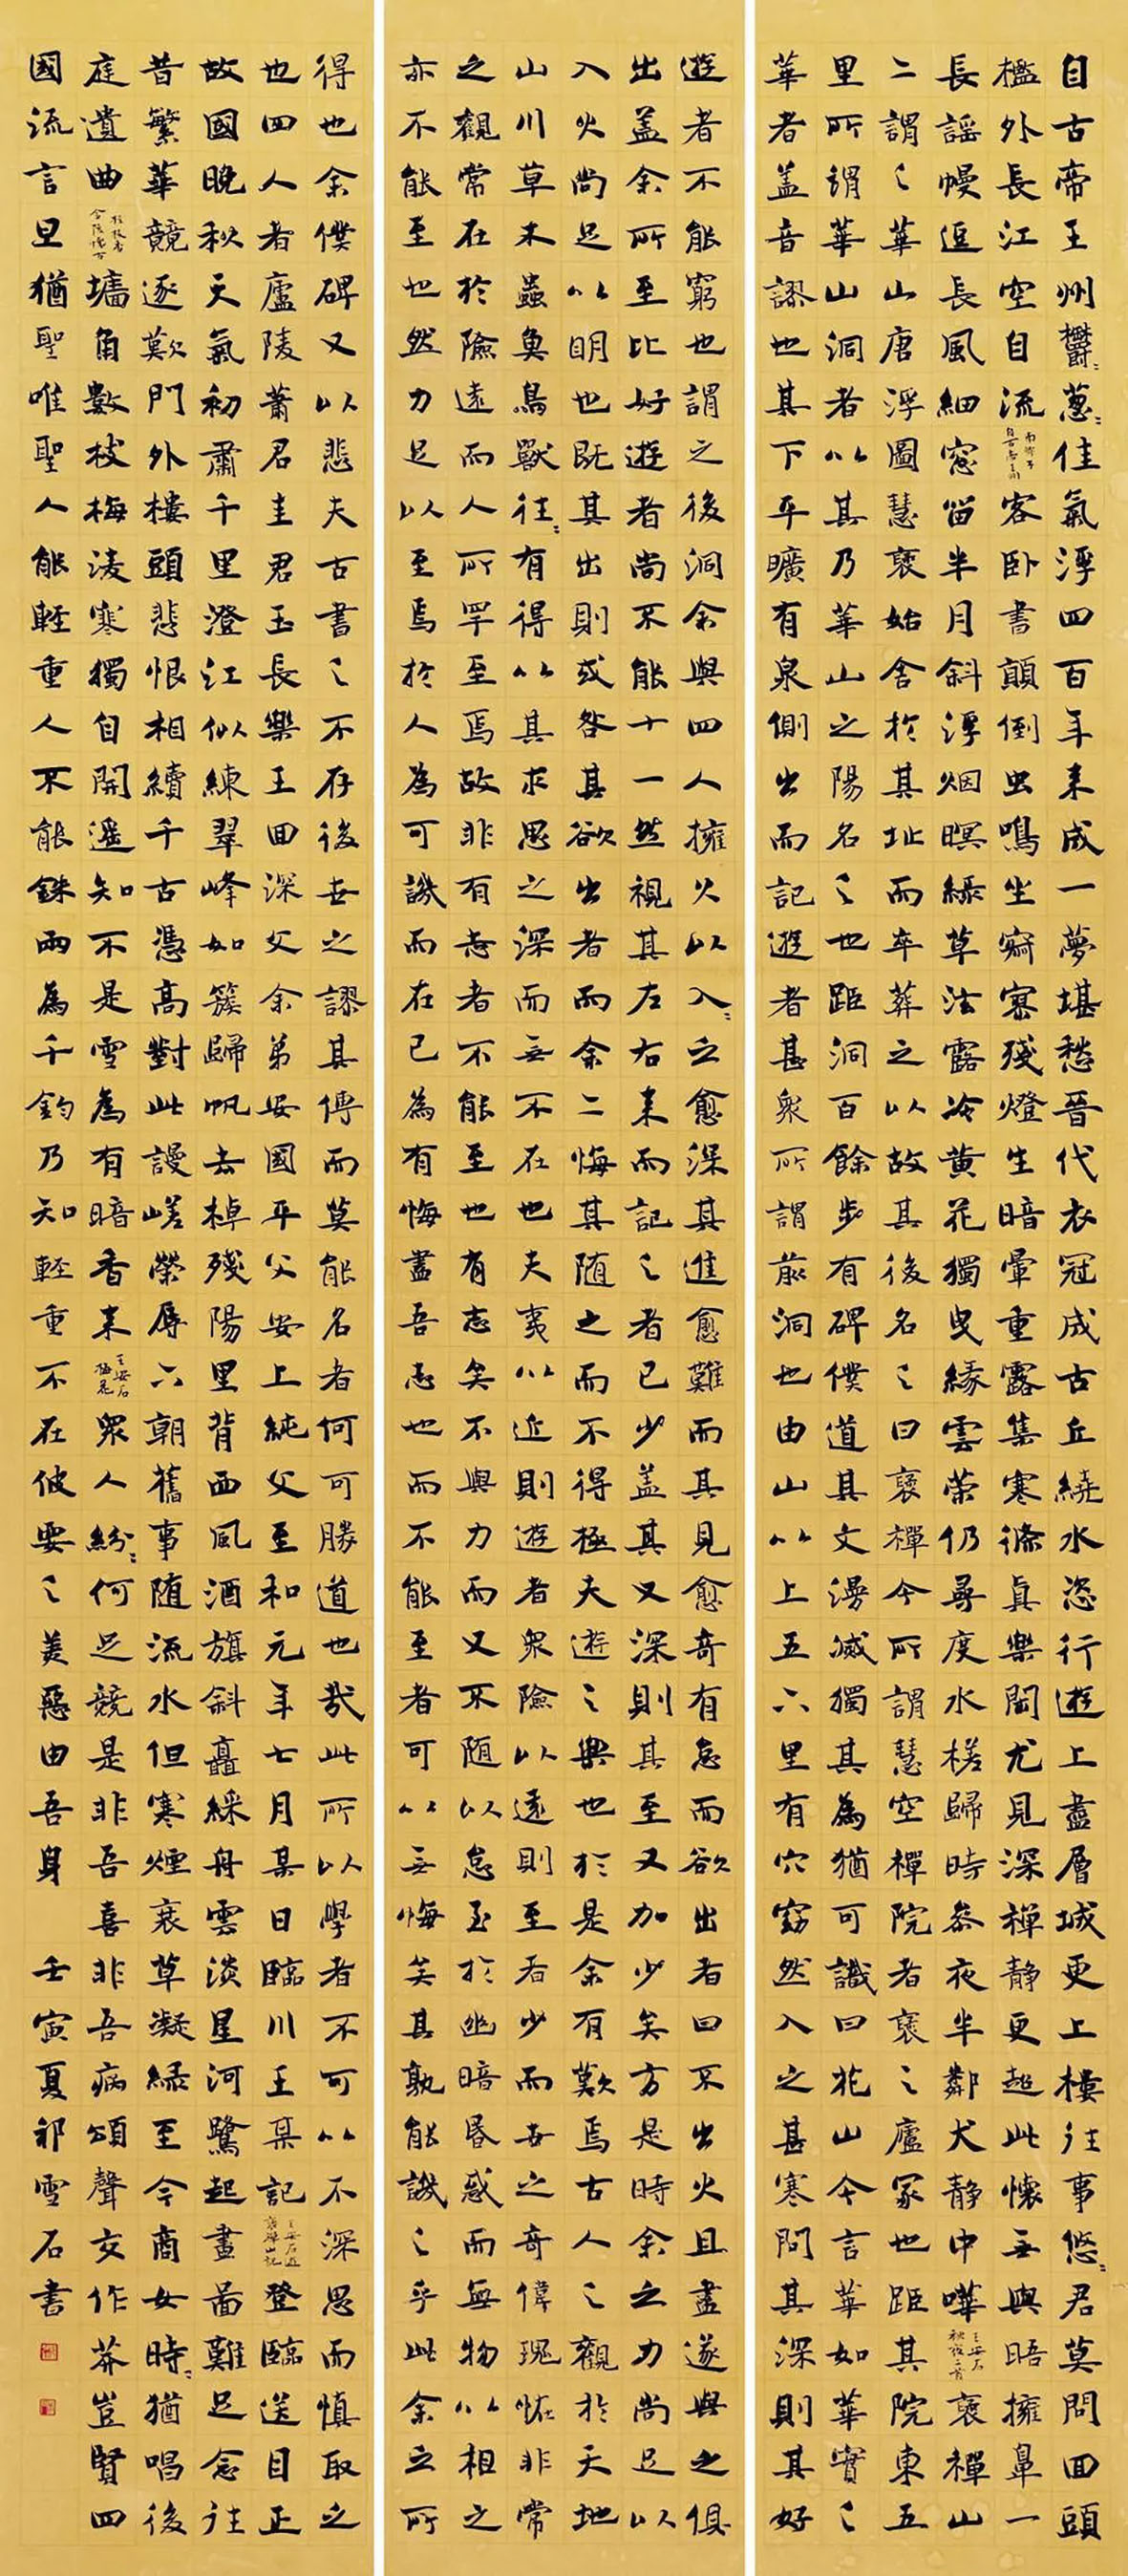 自古帝王州鬱〻葱〻佳氣浮四百年来成一夢堪愁晉代衣冠成古丘繞水恣行遊上盡層城更上樓往事悠〻君莫問回頭
檻外長江空自流南鄉子自古帝王州客卧書顛倒虫鳴坐寂寥残燈生暗暈重露集寒條真樂閒尤見深禪静更超此懷無與晤擁鼻一
長謡幔逗長風細窓留半月斜浮烟暝緑草泫露冷黄花獨曳緣雲策仍尋度水槎歸時参夜半鄰犬静中嘩王安石秋夜二首褒禪山
二謂之華山唐浮圖慧褒始舍於其址而卒葬之以故其後名之曰褒禪今所謂慧空禪院者褒之廬冢也距其院東五
里所謂華山洞者以其乃華山之陽名之也距洞百餘步有碑僕道其文漫滅獨其為猶可識曰花山今言華如華實之
華者盖音謬也其下平曠有泉側出而記遊者甚衆所謂前洞也由山以上五六里有穴窈然入之甚寒問其深則其好
遊者不能窮也謂之後洞余與四人擁火以入〻之愈深其進愈難而其見愈奇有怠而欲出者曰不出火且盡遂與之俱
出盖余所至比好遊者尚不能十一然視其左右来而記之者已少盖其又深則其至又加少矣方是時余之力尚足以
入火尚足以明也既其出則或咎其欲出者而余二悔其随之而不得極夫遊之樂也於是余有歎焉古人之觀於天地
山川草木蟲魚鳥獸往〻有得以其求思之深而無不在也夫夷以近則遊者衆險以遠則至者少而世之奇偉瑰怪非常
之觀常在於險遠而人所罕至焉故非有志者不能至也有志矣不與力而又不随以怠至於幽暗昏惑而無物以相之
亦不能至也然力足以至焉於人為可譏而在己為有悔盡吾志也而不能至者可以無悔矣其孰能譏之乎此余之所
得也余僕碑又以悲夫古書之不存後世之謬其傳而莫能名者何可勝道也哉此所以學者不可以不深思而慎取之
也四人者廬陵蕭君圭君玉長樂王回深父余弟安國平父安上純父至和元年七月某日臨川王某記王安石遊褒禪山記登臨送目正
故國晚秋天氣初肅千里澄江似練翠峰如簇歸帆去棹殘陽里背西風酒旗斜矗綵舟雲淡星河鷺起畫圖難足念往
昔繁華競逐歎門外樓頭悲恨相續千古憑高對此謾嗟榮辱六朝舊事随流水但寒煙衰草凝緑至今商女時〻猶唱後
庭遺曲桂枝香金陵懷古墻角數枝梅淩寒獨自開遥知不是雪為有暗香来王安石梅花衆人紛〻何足競是非吾喜非吾病頌聲交作莽豈賢四
國流言旦猶聖唯聖人能輕重人不能銖兩為千鈞乃知輕重不在彼要之美惡由吾身 壬寅夏祁雪石書